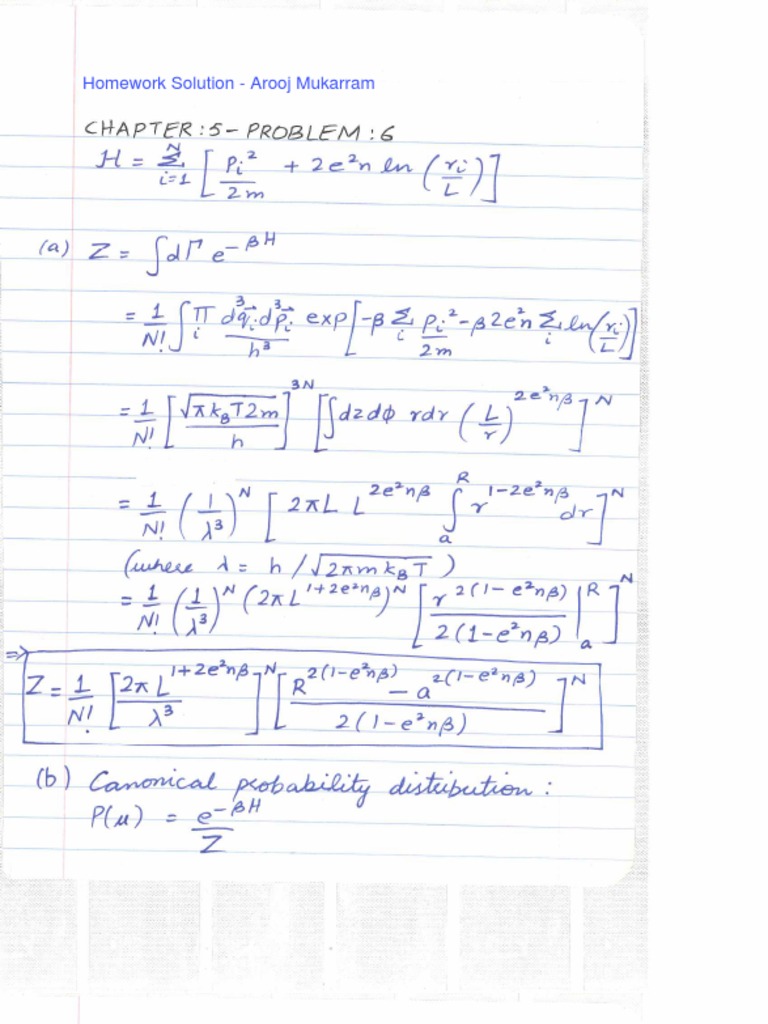 Homework Solution - Arooj Mukarram
CHAPTER : 5 - PROBLEM : 6
H = Σ_{i=1}^{N} [ p_i²/2m + 2e²n ln (r_i/L) ]
(a) Z = ∫dΓ e^{-βH}
= 1/N! ∫ Π_i d³q⃗_i d³p⃗_i/h³ exp[-β Σ_i p_i²/2m - β2e²n Σ_i ln(r_i/L)]
= 1/N! [√(πk_BT2m)/h]^{3N} [∫dzdφ rdr (L/r)^{2e²nβ}]^N
= 1/N! (1/λ³)^N [2πL L^{2e²nβ} ∫_a^R r^{1-2e²nβ} dr]^N
(where λ = h/√(2πmk_BT))
= 1/N! (1/λ³)^N (2πL^{1+2e²nβ})^N [r^{2(1-e²nβ)}/2(1-e²nβ) |_a^R]^N
⇒ Z = 1/N! [2πL^{1+2e²nβ}/λ³]^N [R^{2(1-e²nβ)} - a^{2(1-e²nβ)}/2(1-e²nβ)]^N
(b) Canonical probability distribution :
P(μ) = e^{-βH}/Z